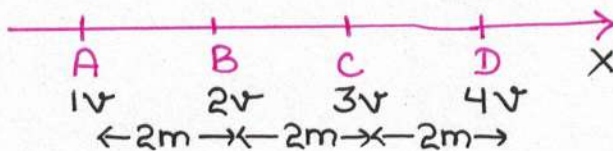 A B C D X
1v 2v 3v 4v
←2m→←2m→←2m→